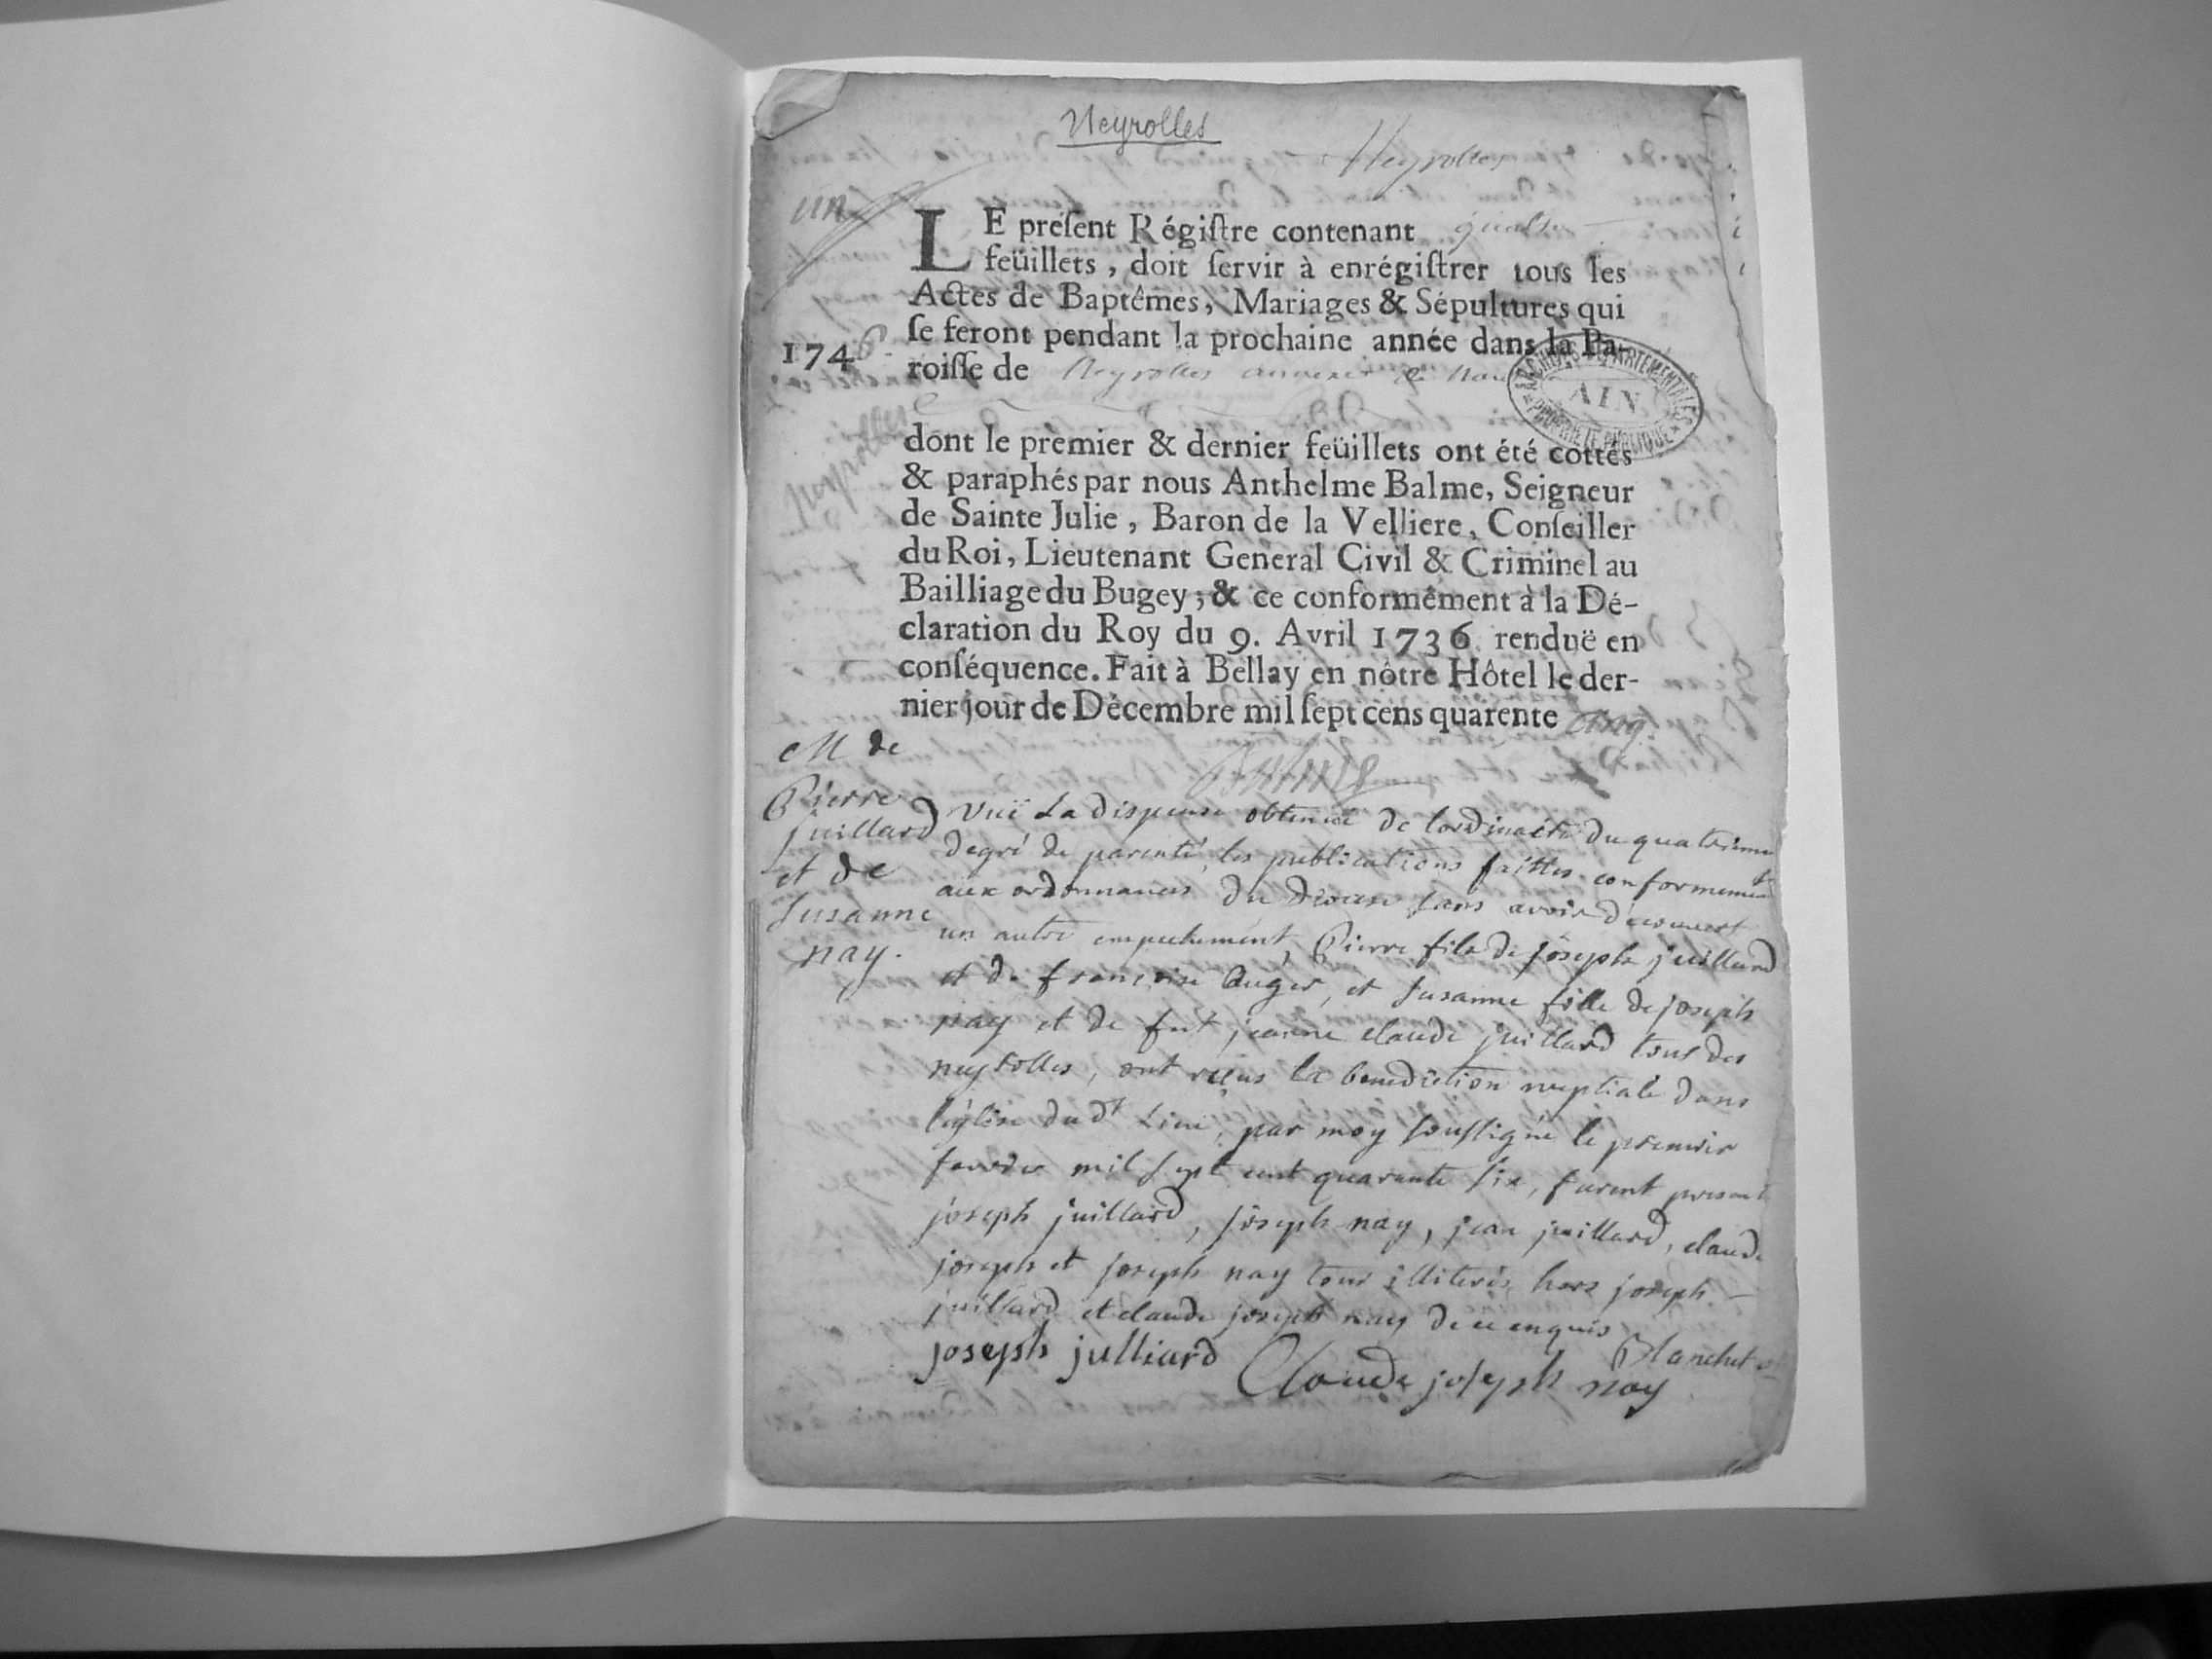 Neyrolles
Neyrolles
un
LE préſent Régiſtre contenant quatre
feüillets, doit ſervir à enrégiſtrer tous les
Actes de Baptêmes, Mariages & Sépultures qui
ſe feront pendant la prochaine année dans la Pa-
1746
roiſſe de Neyrolles annexe de
ARCHIVES DÉPARTEMENTALES
AIN
PROPRIÉTÉ PUBLIQUE
Neyrolles
dont le premier & dernier feüillets ont été cottés
& paraphés par nous Anthelme Balme, Seigneur
de Sainte Julie, Baron de la Velliere, Conſeiller
du Roi, Lieutenant General Civil & Criminel au
Bailliage du Bugey; & ce conformément à la Dé-
claration du Roy du 9. Avril 1736 renduë en
conſéquence. Fait à Bellay en nôtre Hôtel le der-
nier jour de Décembre mil ſept cens quarente Cinq.
M de
Pierre
juillard
et de
Susanne
nay.
Vuë La dispense obtenuë de lordinaire du quatrieme
degré de parenté, les publications faittes conformement
aux ordonnances du diocese sans avoir découvert
un autre empechement, Pierre fils de joseph juillard
et de françoise Auger, et Susanne fille de joseph
nay et de fut jeanne claude juillard tous des
neyrolles, ont reçus la benediction nuptiale dans
léglise dudt Lieu, par moy soussigné le premier
fevrier mil sept cent quarante six, furent present
joseph juillard, joseph nay, jean juillard, claude
joseph et joseph nay tous illiterés hors joseph
juillard et claude joseph nay de ce enquis
Blanchet
joseph julliard Claude joseph nay